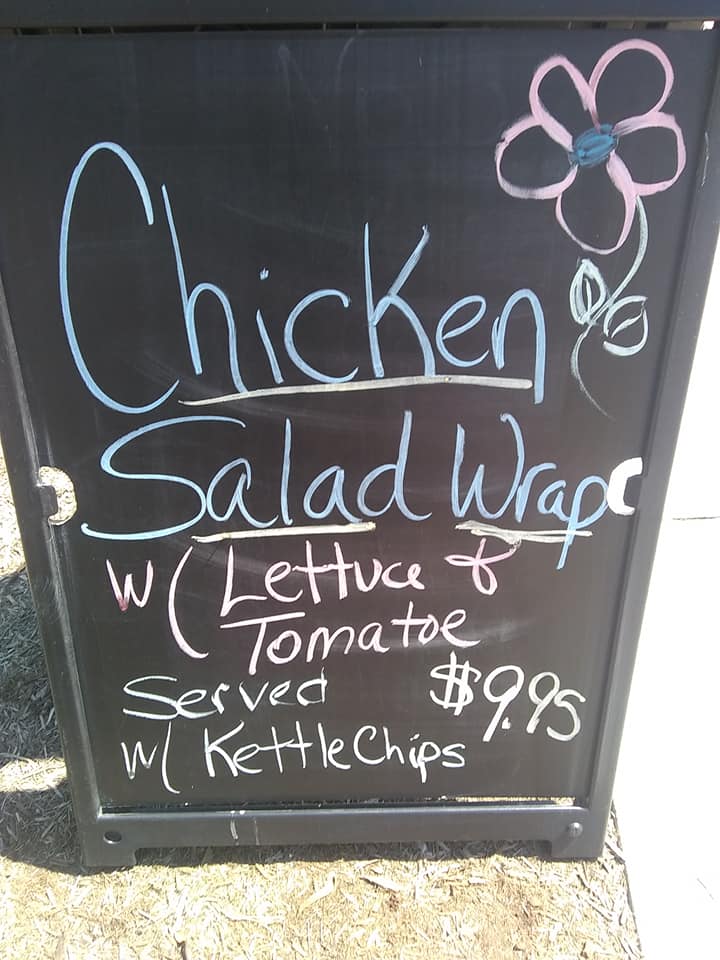 Chicken
Salad Wrap
w/ Lettuce &
Tomatoe
Served $9.95
w/ Kettle Chips